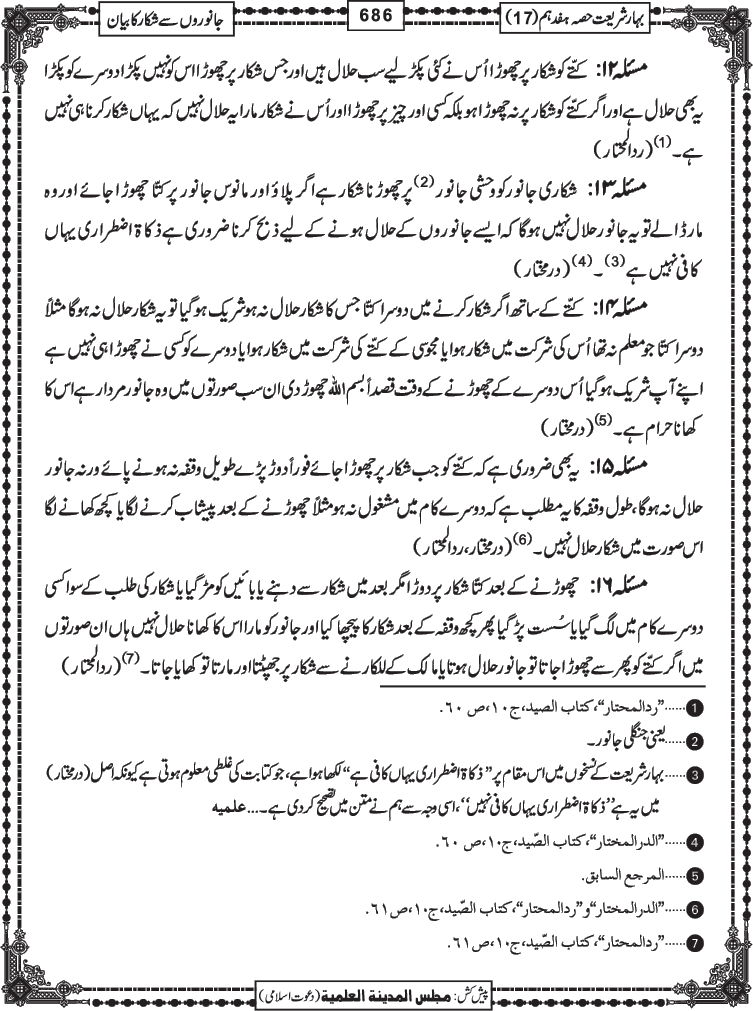 بہارِ شریعت حصہ ہفدہم (17)
686
جانوروں سے شکار کا بیان
مسئلہ ۱۲: کتّے کو شکار پر چھوڑا اُس نے کئی پکڑ لیے سب حلال ہیں اور جس شکار پر چھوڑا اس کو نہیں پکڑا دوسرے کو پکڑا
یہ بھی حلال ہے اور اگر کتّے کو شکار پر نہ چھوڑا ہو بلکہ کسی اور چیز پر چھوڑا اور اُس نے شکار مارا یہ حلال نہیں کہ یہاں شکار کرنا ہی نہیں
ہے۔(1) (ردالمحتار)
مسئلہ ۱۳: شکاری جانور کو وحشی جانور(2) پر چھوڑنا شکار ہے اگر پلاؤ اور مانوس جانور پر کتّا چھوڑا جائے اور وہ
مار ڈالے تو یہ جانور حلال نہیں ہوگا کہ ایسے جانوروں کے حلال ہونے کے لیے ذبح کرنا ضروری ہے ذکاۃ اضطراری یہاں
کافی نہیں ہے(3)۔(4) (درمختار)
مسئلہ ۱۴: کتّے کے ساتھ اگر شکار کرنے میں دوسرا کتّا جس کا شکار حلال نہ ہو شریک ہوگیا تو یہ شکار حلال نہ ہوگا مثلاً
دوسرا کتّا جو معلم نہ تھا اُس کی شرکت میں شکار ہوا یا مجوسی کے کتّے کی شرکت میں شکار ہوا یا دوسرے کو کسی نے چھوڑا ہی نہیں ہے
اپنے آپ شریک ہوگیا اُس دوسرے کے چھوڑنے کے وقت قصداً بسم اللہ چھوڑ دی ان سب صورتوں میں وہ جانور مردار ہے اس کا
کھانا حرام ہے۔(5) (درمختار)
مسئلہ ۱۵: یہ بھی ضروری ہے کہ کتّے کو جب شکار پر چھوڑا جائے فوراً دوڑ پڑے طویل وقفہ نہ ہونے پائے ورنہ جانور
حلال نہ ہوگا، طول وقفہ کا یہ مطلب ہے کہ دوسرے کام میں مشغول نہ ہو مثلاً چھوڑنے کے بعد پیشاب کرنے لگا یا کچھ کھانے لگا
اس صورت میں شکار حلال نہیں۔(6) (درمختار، ردالمحتار)
مسئلہ ۱۶: چھوڑنے کے بعد کتّا شکار پر دوڑا مگر بعد میں شکار سے دہنے یا بائیں کو مڑ گیا یا شکار کی طلب کے سوا کسی
دوسرے کام میں لگ گیا یا سُست پڑ گیا پھر کچھ وقفہ کے بعد شکار کا پیچھا کیا اور جانور کو مارا اس کا کھانا حلال نہیں ہاں ان صورتوں
میں اگر کتّے کو پھر سے چھوڑا جاتا تو جانور حلال ہوتا یا مالک کے للکارنے سے شکار پر جھپٹتا اور مارتا تو کھایا جاتا۔(7) (ردالمحتار)
1......"ردالمحتار"، کتاب الصید، ج۱۰، ص۶۰.
2......یعنی جنگلی جانور۔
3......بہار شریعت کے نسخوں میں اس مقام پر "ذکاۃ اضطراری یہاں کافی ہے" لکھا ہوا ہے، جو کتابت کی غلطی معلوم ہوتی ہے کیونکہ اصل (درمختار)
میں یہ ہے "ذکاۃ اضطراری یہاں کافی نہیں"، اسی وجہ سے ہم نے متن میں تصحیح کر دی ہے۔... علمیه
4......"الدرالمختار"، کتاب الصّید، ج۱۰، ص۶۰.
5......المرجع السابق.
6......"الدرالمختار" و"ردالمحتار"، کتاب الصّید، ج۱۰، ص۶۱.
7......"ردالمحتار"، کتاب الصّید، ج۱۰، ص۶۱.
پیش کش: مجلس المدینة العلمیة (دعوت اسلامی)